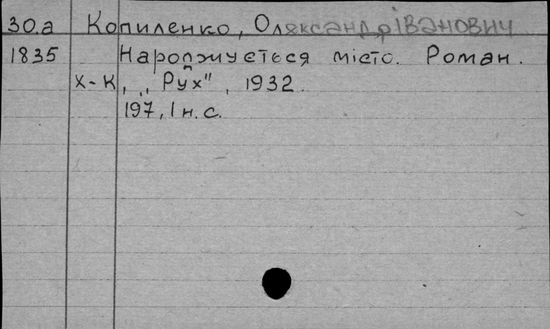 30.а Копиленко, Олександр Іванович
1835 Народжується місто. Роман.
Х-К, „Рух", 1932.
197, 1 н. с.